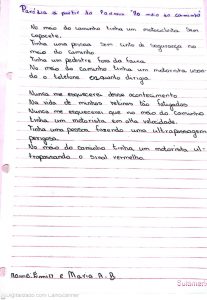 Paródia a partir do Poema "No meio do caminho"
No meio do caminho tinha um motociclista sem
capacete.
Tinha uma pessoa sem cinto de segurança no
meio do caminho
Tinha um pedestre fora da faixa
No meio do caminho tinha um motorista usan-
do o telefone enquanto dirigia.
Nunca me esquecerei desse acontecimento
Na vida de minhas retinas tão fatigadas
Nunca me esquecerei que no meio do caminho
tinha um motorista em alta velocidade.
Tinha uma pessoa fazendo uma ultrapassagem
perigosa.
No meio do caminho tinha um motorista ul-
trapassando o sinal vermelho.
e Maria A. B
Digitalizado com CamScanner